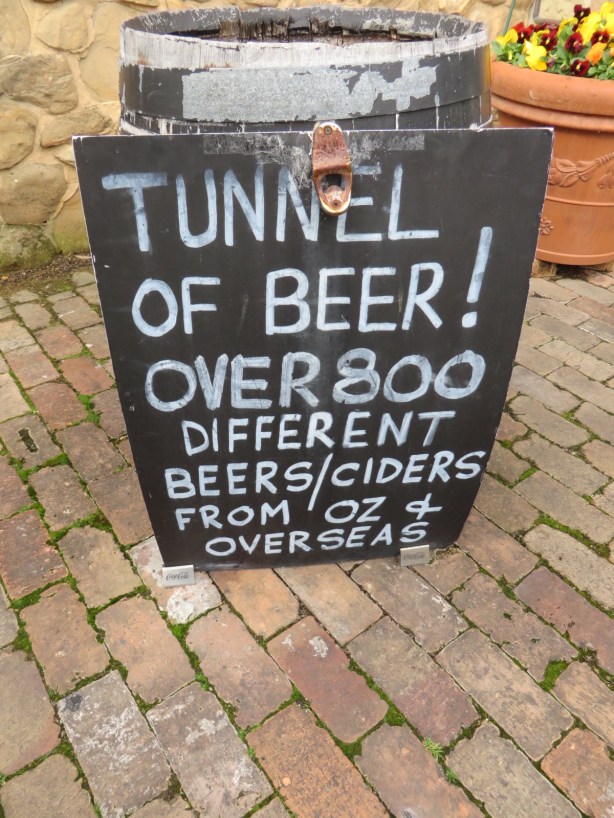 TUNNEL
OF BEER!
OVER 800
DIFFERENT
BEERS/CIDERS
FROM OZ &
OVERSEAS